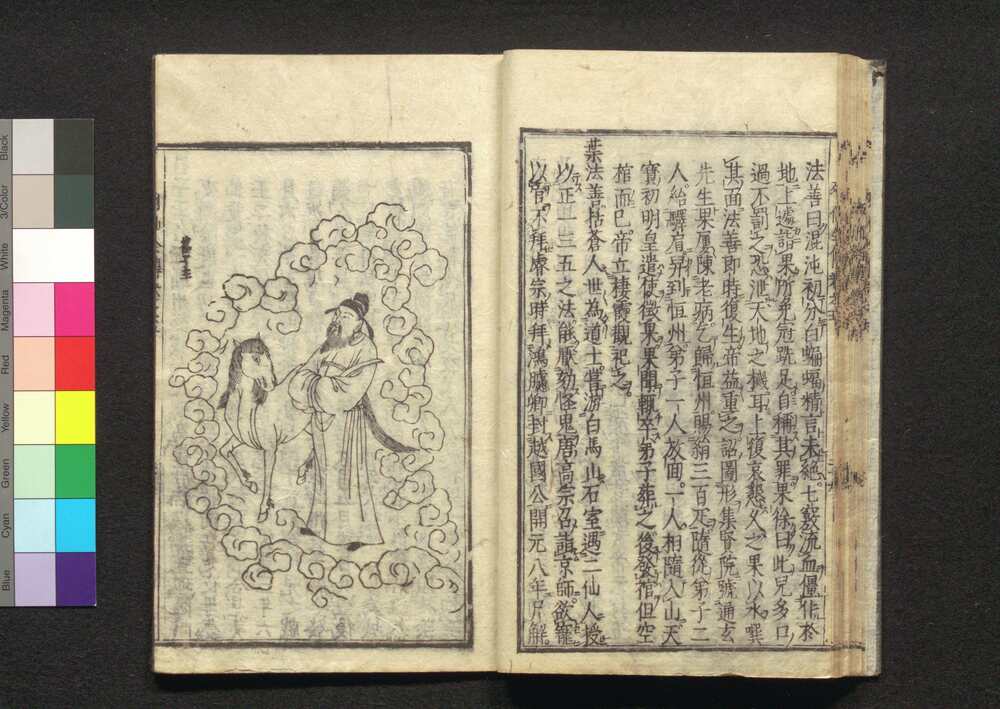 法善曰混沌初分白蝙蝠精言未絶七竅流血僵仆於
地上遽詣果所免冠跣足自稱其罪果徐曰此兒多口
過不罰之恐泄天地之機耳上復哀懇久之果以水噀
其面法善即時復生帝益重之詔圖形集賢院號通玄
先生果厪陳老病乞歸恒州賜絹三百疋隨從弟子二
人給驛肩舁到恒州弟子一人放囬一人相隨入山天
寶初明皇遣使徴果果聞輒卒弟子葬之後發棺但空
棺而已帝立棲霞觀祀之
葉法善括蒼人世為道士嘗游白馬山石室遇二仙人授
以正一三五之法能厭劾怪鬼唐高宗召詣京師欲寵
以官不拜睿宗時拜鴻臚卿封越國公開元八年尸解
Black
3/Color
White
Magenta
Red
Yellow
Green
Cyan
Blue